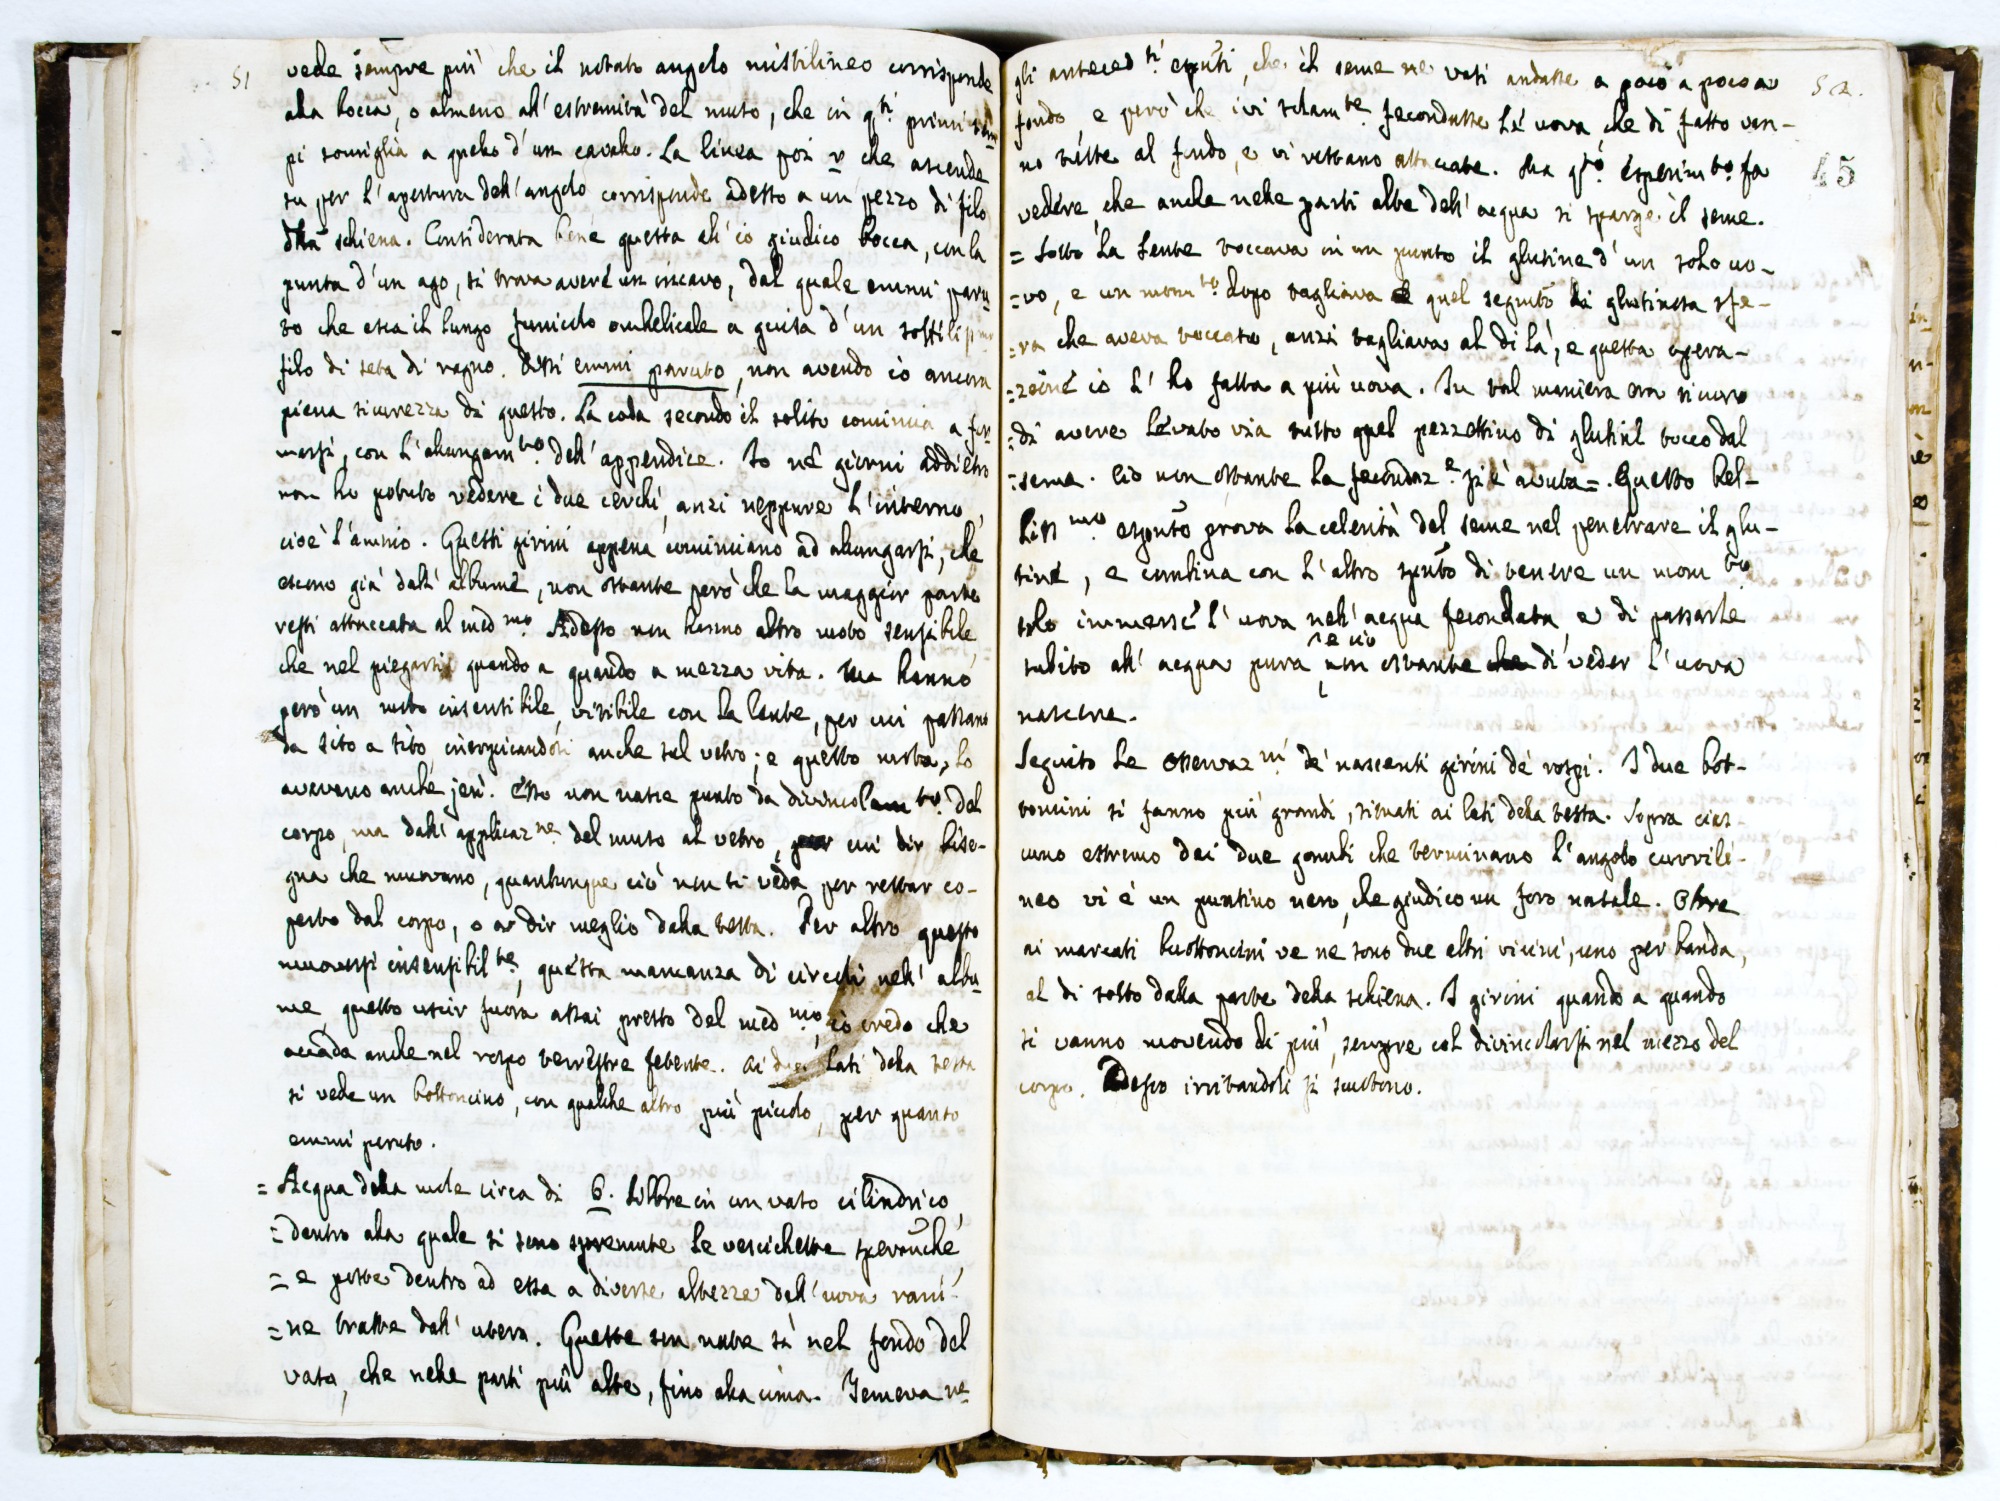 51
vede sempre più che il notato angolo mistilineo corrisponde
alla bocca, o almeno all'estremità del muso, che in q.ti primi tem
pi somiglia a quello d'un cavallo. La linea poi v che ascende
su per l'apertura dell'angolo corrisponde adesso a un pezzo di filo
della schiena. Considerata bene questa ch'io giudico bocca, con la
punta d'un ago, si trova avere un incavo, dal quale emmi paru
to che esca il lungo funicolo ombelicale a guisa d'un sottiliss.mo
filo di seta di ragno. Dissi emmi paruto, non avendo io ancora
piena sicurezza di questo. La coda secondo il solito comincia a for
marsi, con l'allungam.to dell'appendice. Io ne' giorni addietro
non ho potuto vedere i due cerchi, anzi neppure l'interno,
cioè l'amnio. Questi girini appena cominciano ad allungarsi, che
escono già dall'albume, non ostante però che la maggior parte
resti attaccata al med.mo Adesso non hanno altro moto sensibile,
che nel piegarsi quando a quando a mezza vita. Ma hanno
però un moto insensibile, visibile con la lente, per cui passano
da sito a sito, inerpicandosi anche sul vetro; e questo moto, lo
avevano anche jeri. Esso non nasce punto da divincolam.to del
corpo, ma dall'applicaz.ne del muso al vetro, cui dir biso-
gna che muovano, quantunque ciò non si veda per restar co-
perto dal corpo, o a dir meglio dalla testa. Per altro questo
muoversi insensibil.te, questa mancanza di circoli nell'albu
me, questo uscir fuora assai presto del med.mo, io credo che
accada anche nel rospo terrestre fetente. Ai due lati della testa
si vede un bottoncino, con qualche altro più piccolo, per quanto
emmi paruto.
= Acqua della mole circa di 6. libbre in un vaso cilindrico,
= dentro alla quale si sono spremute le vescichette spermche,
= e poste dentro ad essa a diverse altezze dell'uova rani-
= ne tratte dall'utero. Queste son nate sì nel fondo del
vaso, che nelle parti più alte, fino alla cima. Temeva ne
52.
45
gli anteced.ti spmti, che il seme ne vasi andasse a poco a poco a
fondo, e però che ivi solam.te fecondasse le uova che di fatto van-
no tutte al fondo, e vi restano attaccate. Ma q.sto esperim.to fa
vedere, che anche nelle parti alte dell'acqua si sparge il seme.
= Sotto la lente toccava in un punto il glutine d'un solo uo-
= vo, e un mom.to dopo tagliava quel segmto di glutinosa sfe-
= ra che aveva toccato, anzi tagliava al di là, e questa opera-
= zione io l'ho fatta a più uova. In tal maniera era sicuro
= di avere levato via tutto quel pezzettino di glutine tocco dal
= seme. Ciò non ostante la fecondaz.e si è avuta =. Questo bel-
liss.mo espmto prova la celerità del seme nel penetrare il glu-
tine, e combina con l'altro spmto di tenere un mom.to
solo immerse l'uova nell'acqua fecondata, e di passarle
subito all'acqua pura, e ciò non ostante di veder l'uova
nascere.
Seguito le osservaz.ni de' nascenti girini de' rospi. I due bot-
toncini si fanno più grandi, situati ai lati della testa. Sopra cias-
cuno estremo dei due gomiti che terminano l'angolo curvili-
neo vi è un puntino nero, che giudico un foro nasale. Oltre
ai marcati buottoncini ve ne sono due altri vicini, uno per banda,
al di sotto dalla parte della schiena. I girini quando a quando
si vanno movendo di più, sempre col divincolarsi nel mezzo del
corpo. Adesso irritandoli si scuotono.